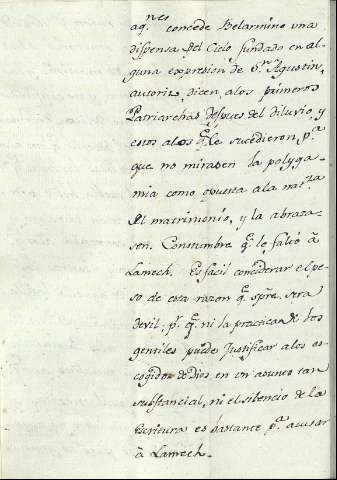 aq.nes concede Belarmino una
dispensa del Cielo fundado en al
guna expresion de S.n Agustin,
autorizó, dicen, alos primeros
Patriarchas despues del diluvio, y
estos alos q.e le sucedieron, p.a
que no mirasen la polyga
mia como opuesta ala nat.za
del matrimonio, y la abraza-
sen. Constumbre q.e le faltó à
Lamech. Es facil considerar el pe
so de esta razon q.e spre. sera
devil: p.r q.e ni la practica de los
gentiles puede Justificar alos es-
cogidos de Dios, en un asunto tan
substancial, ni el silencio de la
escritura es bastante p.a acusar
à Lamech.